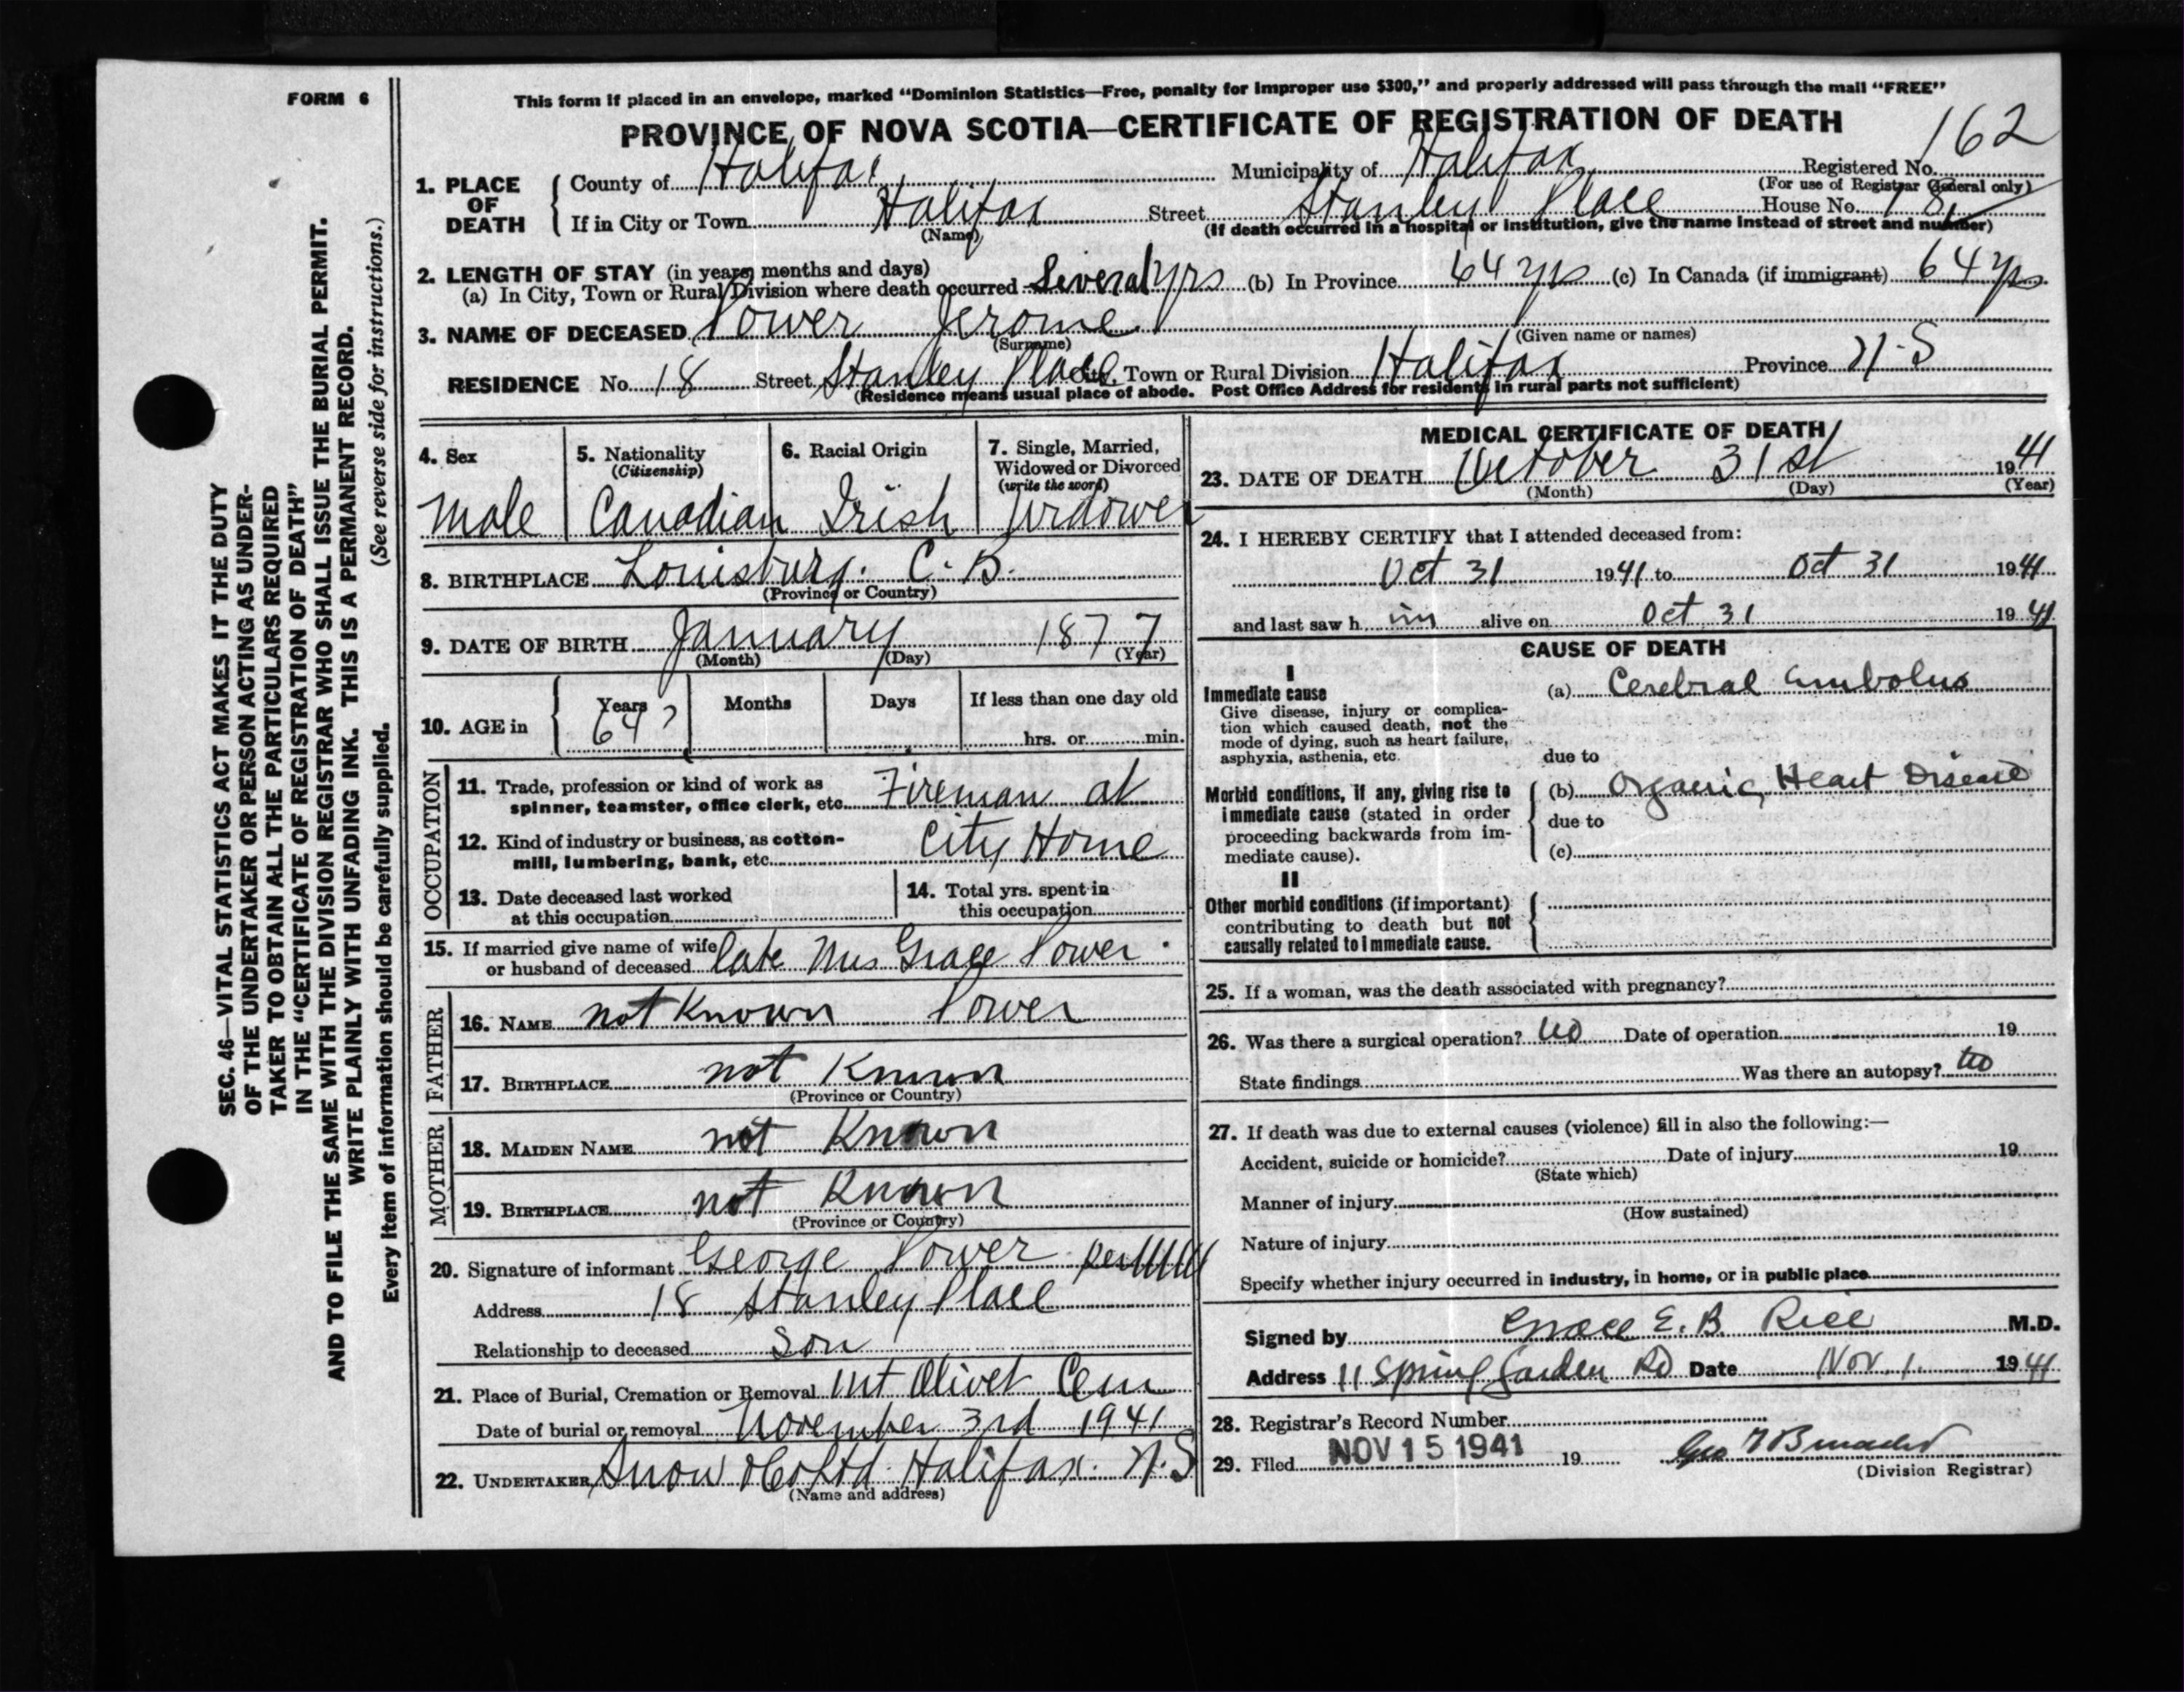 FORM 6
This form if placed in an envelope, marked “Dominion Statistics—Free, penalty for improper use $300,” and properly addressed will pass through the mail “FREE”
PROVINCE OF NOVA SCOTIA—CERTIFICATE OF REGISTRATION OF DEATH
162
1. PLACE OF DEATH
County of Halifax Municipality of Halifax Registered No.
(For use of Registrar General only)
If in City or Town Halifax Street Stanley Place House No. 18
(Name) (If death occurred in a hospital or institution, give the name instead of street and number)
2. LENGTH OF STAY (in years, months and days)
(a) In City, Town or Rural Division where death occurred Several yrs (b) In Province 64 yrs (c) In Canada (if immigrant) 64 yrs
3. NAME OF DECEASED Power Jerome
(Surname) (Given name or names)
RESIDENCE No. 18 Street Stanley Place City, Town or Rural Division Halifax Province N.S
(Residence means usual place of abode. Post Office Address for residents in rural parts not sufficient)
4. Sex
Male
5. Nationality
(Citizenship)
Canadian
6. Racial Origin
Irish
7. Single, Married,
Widowed or Divorced
(write the word)
Widower
8. BIRTHPLACE Louisburg. C.B.
(Province or Country)
9. DATE OF BIRTH January 1877
(Month) (Day) (Year)
10. AGE in
Years Months Days If less than one day old
64? hrs. or min.
OCCUPATION
11. Trade, profession or kind of work as
spinner, teamster, office clerk, etc. Fireman at
12. Kind of industry or business, as cotton-
mill, lumbering, bank, etc. City Home
13. Date deceased last worked
at this occupation
14. Total yrs. spent in
this occupation
15. If married give name of wife
or husband of deceased late Mrs Grace Power
FATHER
16. NAME not Known Power
17. BIRTHPLACE not Known
(Province or Country)
MOTHER
18. MAIDEN NAME not Known
19. BIRTHPLACE not Known
(Province or Country)
20. Signature of informant George Power
Address 18 Stanley Place
Relationship to deceased Son
21. Place of Burial, Cremation or Removal Mt Olivet Cem
Date of burial or removal November 3rd 1941
22. UNDERTAKER Snow & Co Ltd. Halifax. N.S
(Name and address)
MEDICAL CERTIFICATE OF DEATH
23. DATE OF DEATH October 31st 1941
(Month) (Day) (Year)
24. I HEREBY CERTIFY that I attended deceased from:
Oct 31 1941 to Oct 31 1941
and last saw h im alive on Oct 31 1941
CAUSE OF DEATH
I
Immediate cause
Give disease, injury or complica-
tion which caused death, not the
mode of dying, such as heart failure,
asphyxia, asthenia, etc.
(a) Cerebral Embolus
due to
Morbid conditions, if any, giving rise to
immediate cause (stated in order
proceeding backwards from im-
mediate cause).
(b) Organic Heart Disease
due to
(c)
II
Other morbid conditions (if important)
contributing to death but not
causally related to immediate cause.
25. If a woman, was the death associated with pregnancy?
26. Was there a surgical operation? No Date of operation 19
State findings Was there an autopsy? No
27. If death was due to external causes (violence) fill in also the following:—
Accident, suicide or homicide? Date of injury 19
(State which)
Manner of injury
(How sustained)
Nature of injury
Specify whether injury occurred in industry, in home, or in public place
Signed by Grace E. B. Rice M.D.
Address 11 Spring Garden Rd Date Nov. 1. 1941
28. Registrar's Record Number
29. Filed NOV 15 1941 19
(Division Registrar)
SEC. 46—VITAL STATISTICS ACT MAKES IT THE DUTY
OF THE UNDERTAKER OR PERSON ACTING AS UNDER-
TAKER TO OBTAIN ALL THE PARTICULARS REQUIRED
IN THE “CERTIFICATE OF REGISTRATION OF DEATH”
AND TO FILE THE SAME WITH THE DIVISION REGISTRAR WHO SHALL ISSUE THE BURIAL PERMIT.
WRITE PLAINLY WITH UNFADING INK. THIS IS A PERMANENT RECORD.
Every item of information should be carefully supplied. (See reverse side for instructions.)